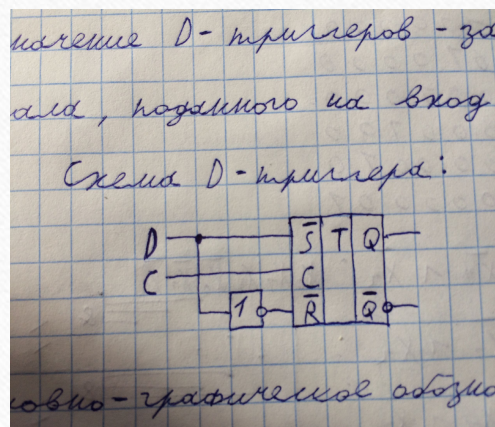 начение D-триггеров - за
ала, поданного на вход
Схема D-триггера:
D S̅ T Q
C C
1 R̅ Q̅
овно-графическое обозно